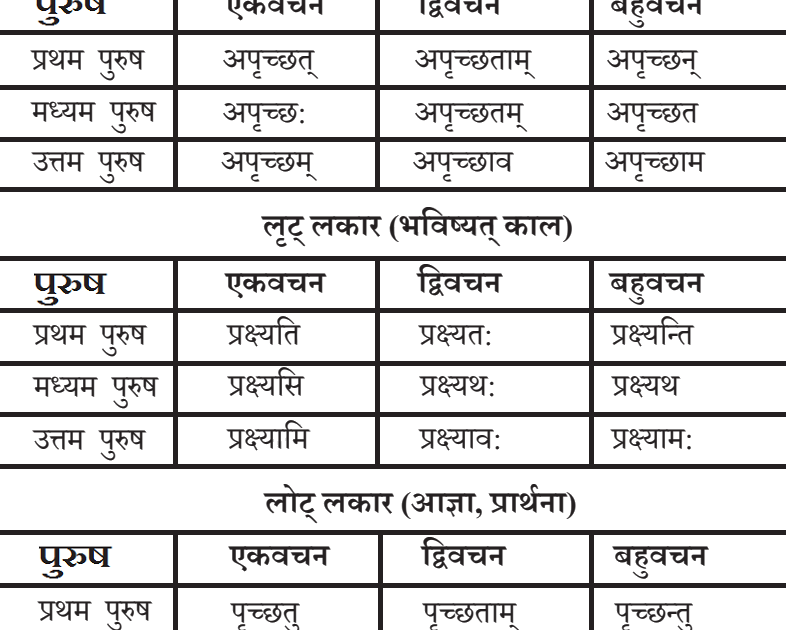 पुरुष एकवचन द्विवचन बहुवचन
प्रथम पुरुष अपृच्छत् अपृच्छताम् अपृच्छन्
मध्यम पुरुष अपृच्छ: अपृच्छतम् अपृच्छत
उत्तम पुरुष अपृच्छम् अपृच्छाव अपृच्छाम
लृट् लकार (भविष्यत् काल)
पुरुष एकवचन द्विवचन बहुवचन
प्रथम पुरुष प्रक्ष्यति प्रक्ष्यत: प्रक्ष्यन्ति
मध्यम पुरुष प्रक्ष्यसि प्रक्ष्यथ: प्रक्ष्यथ
उत्तम पुरुष प्रक्ष्यामि प्रक्ष्याव: प्रक्ष्याम:
लोट् लकार (आज्ञा, प्रार्थना)
पुरुष एकवचन द्विवचन बहुवचन
प्रथम पुरुष पृच्छतु पृच्छताम् पृच्छन्तु